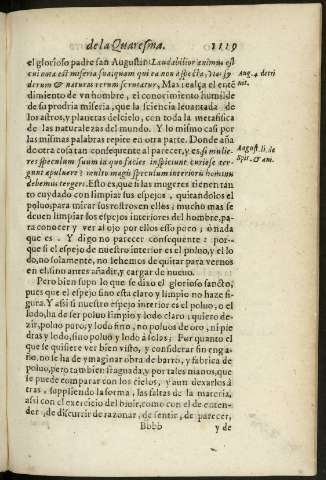 de la Quaresma. 1119
el glorioso padre san Augustin: Laudabilior animus est
cui nota est miseria sua quam qui ea non aspecta, vias sy
derum & naturas rerum scrutatur, Mas realça el enté
dimiento de vn hombre, el conocimiento humilde
de su propria miseria, que la sciencia leuantada de
los astros, y planetas del cielo, con toda la metafisica
de las naturalezas del mundo. Y lo mismo casi por
las mismas palabras repite en otra parte. Donde aña
de otra cosa tan consequente al parecer, y es, si mulie-
res speculum suum in quo facies inspiciunt curiose ter-
gunt a puluere: multo magis speculum interioris hominis
debemus tergere. Esto es, que si las mugeres tienen tan
to cuydado con limpiar sus espejos, quitandolos el
poluo, para mirar sus rostros en ellos; mucho mas se
deuen limpiar los espejos interiores del hombre, pa-
ra conocer y ver al ojo por ellos esso poco; o nada
que es. Y digo no parecer consequente: por-
que si el espejo de nuestro interior es el poluo, y el lo
do, no solamente, no le hemos de quitar para vernos
en el sino antes añadir, y cargar de nueuo.
Pero bien supo lo que se dixo el glorioso sancto,
pues que el espejo sino esta claro y limpio no haze fi-
gura. Y assi si nuestro espejo interior es el poluo, o el
lodo, ha de ser poluo limpio y lodo claro; quiero de-
zir, poluo puro, y lodo fino, no poluos de oro, ni pie
dras y lodo, sino poluo y lodo à solas; Por quanto el
que se quisiere ver bien visto, y considerar sin enga-
ño, no se ha de ymaginar obra de barro, y fabrica de
poluo, pero tambien fraguada, y por tales manos, que
se puede comparar con los cielos, y aun dexarlos à
tras, suppliendo la forma, las faltas de la materia,
assi con el exercicio del biuir, como con el de enten-
der, de discurrir de razonar, de sentir, de parecer,
Bbbb y de
Aug. 4. de tri
nit.
August. li. de
Spir. & am.